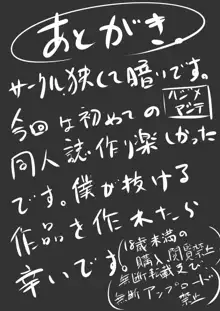 あとがき。
サークル狭くて暗いです。
今回は初めての
ハジメマシテ
同人誌作り楽しかった
です。僕が抜ける
作品を作れたら
幸いです。
(18歳未満の
購入、閲覧禁止
無断転載及び、
無断アップロード
禁止)